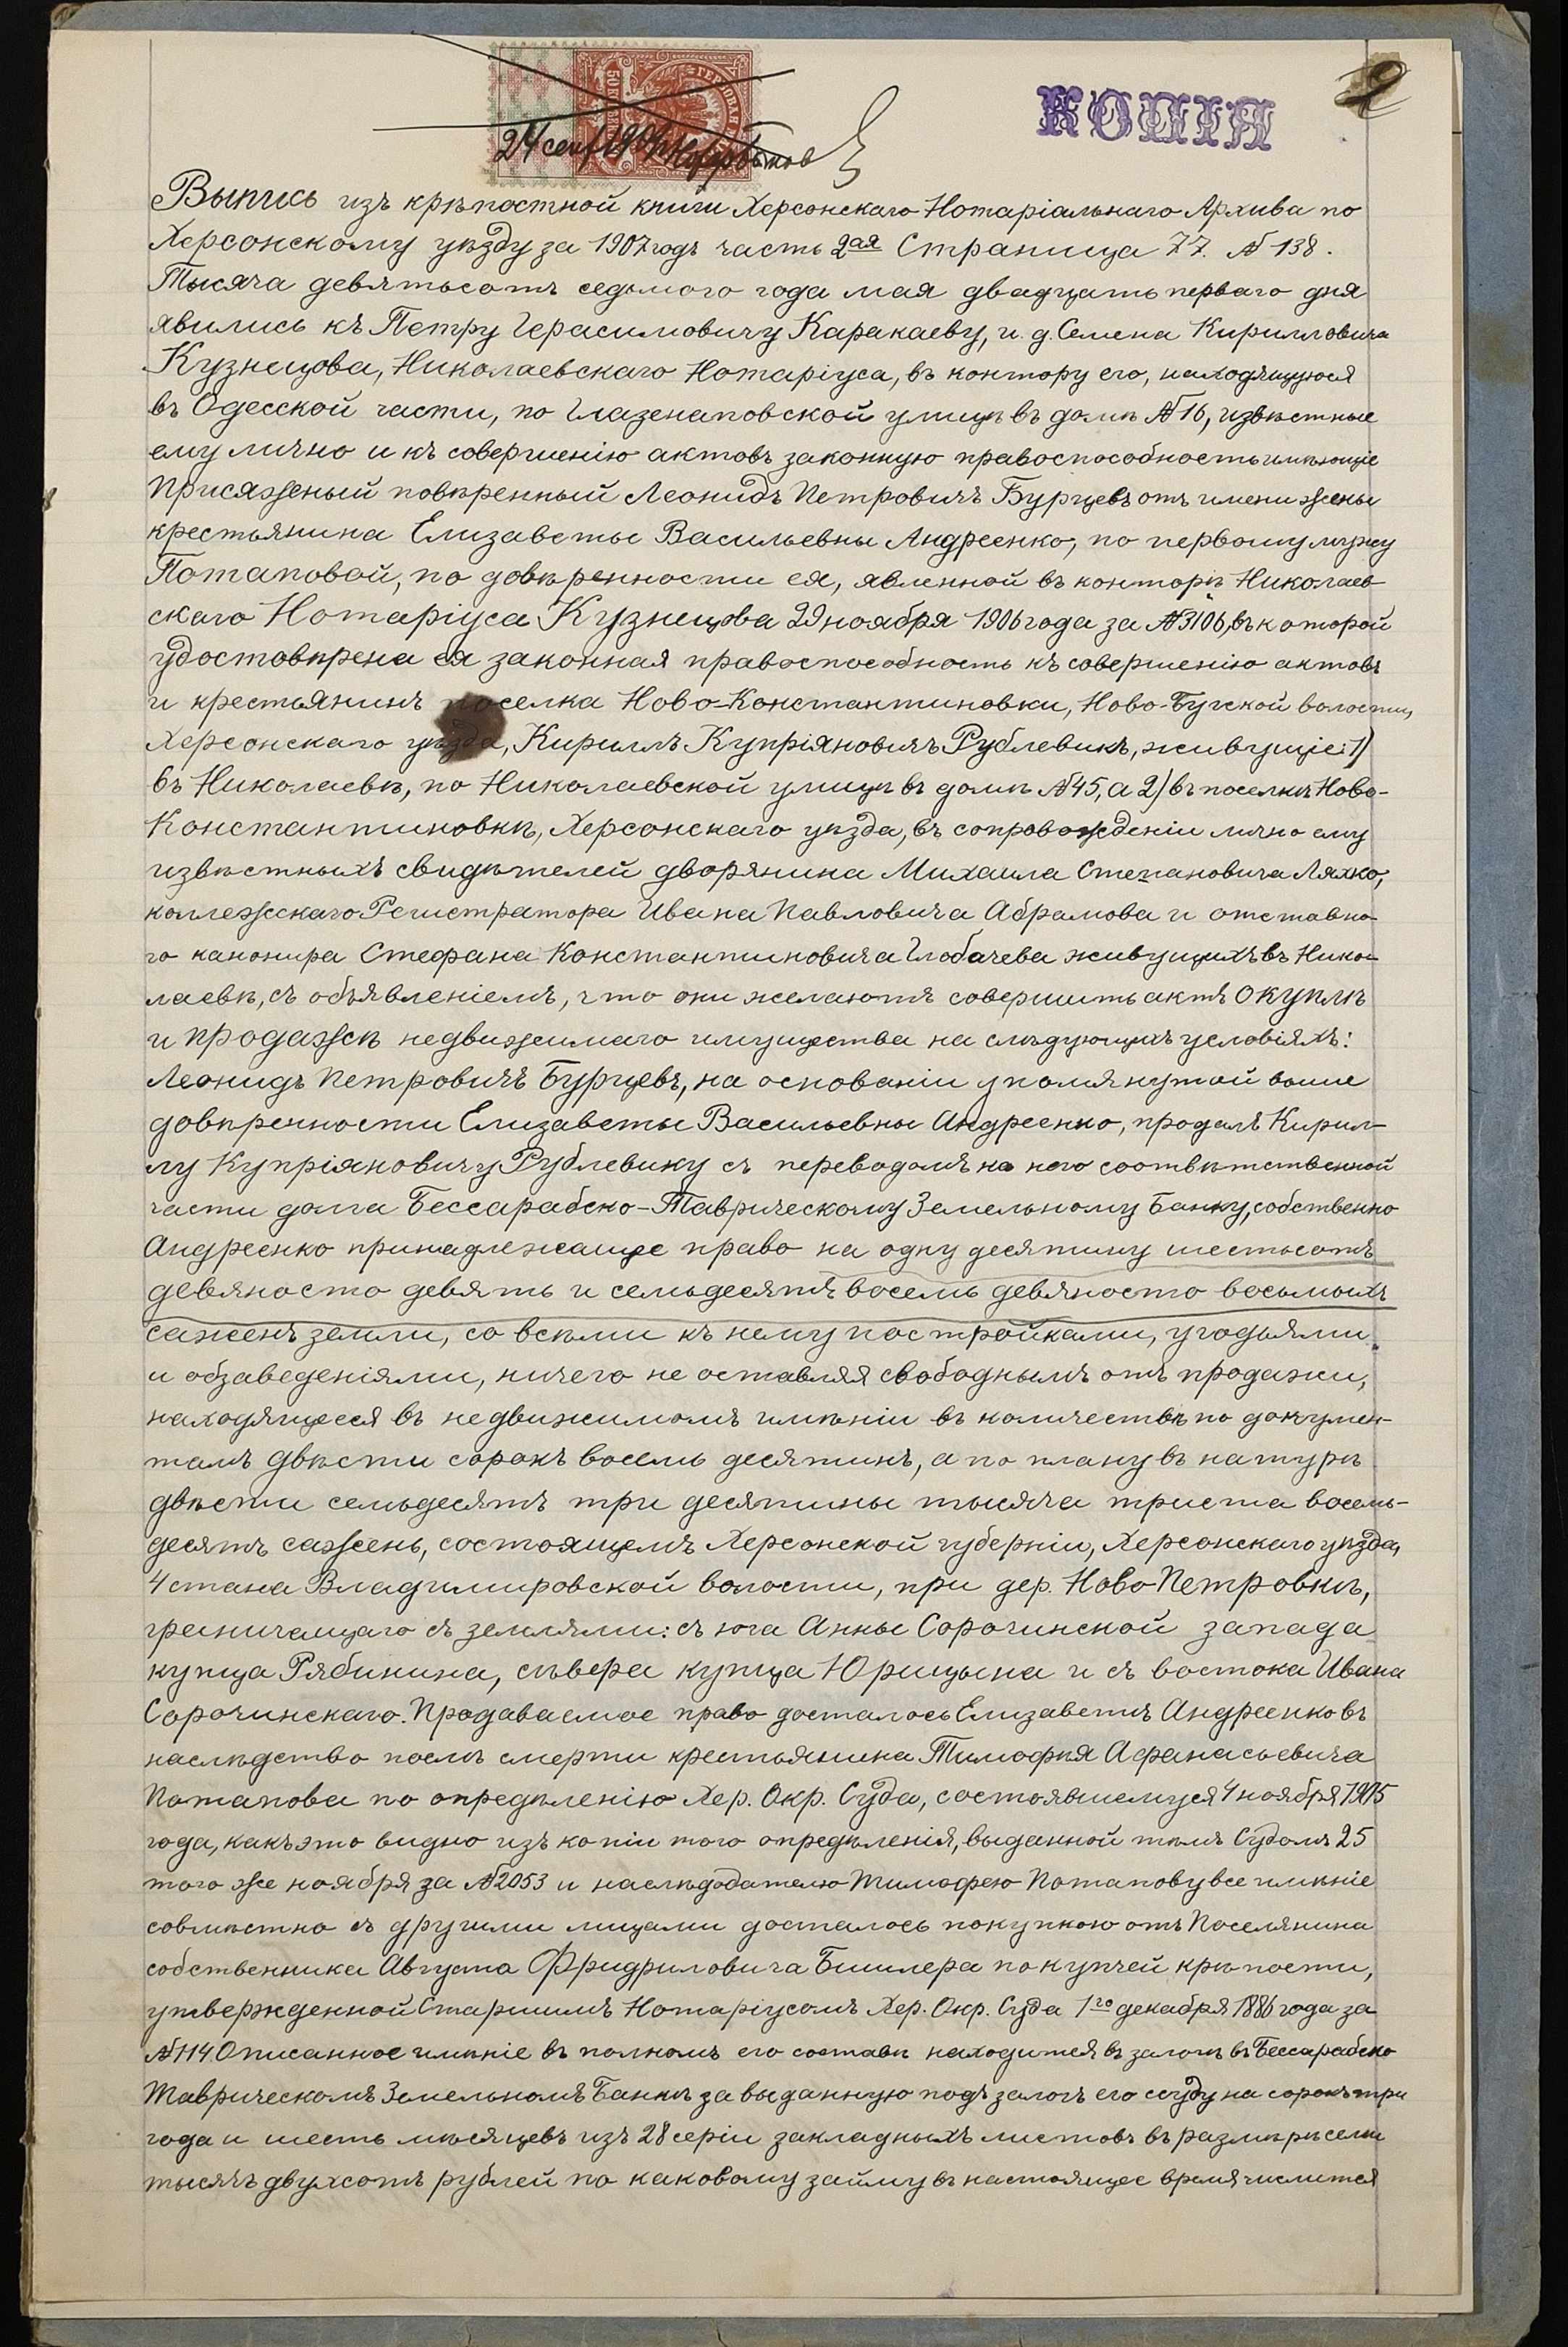 КОПІЯ
2
ГЕРБОВАЯ
24 сент 190
Выпись изъ крѣпостной книги Херсонскаго Нотаріальнаго Архива по
Херсонскому уѣзду за 1907 годъ часть 2ая Страница 77. № 138.
Тысяча девятьсотъ седьмого года мая двадцать перваго дня
явились къ Петру Герасимовичу Каракаеву, и. д. Семена Кирилловича
Кузнецова, Николаевскаго Нотаріуса, въ контору его, находящуюся
въ Одесской части, по Глазенаповской улицѣ въ домѣ № 16, извѣстные
ему лично и къ совершенію актовъ законную правоспособность имѣющіе
Присяжный повѣренный Леонидъ Петровичъ Бурцевъ отъ имени жены
крестьянина Елизаветы Васильевны Андреенко, по первому мужу
Потаповой, по довѣренности ея, явленной въ конторѣ Николаев-
скаго Нотаріуса Кузнецова 29 ноября 1906 года за № 3106, въ которой
удостовѣрена ея законная правоспособность къ совершенію актовъ
и крестьянинъ поселка Ново-Константиновки, Ново-Бугской волости,
Херсонскаго уѣзда, Кириллъ Купріяновичъ Рублевикъ, живущіе: 1)
въ Николаевѣ, по Николаевской улицѣ въ домѣ № 45, а 2) въ поселкѣ Ново-
Константиновкѣ, Херсонскаго уѣзда, въ сопровожденіи лично ему
извѣстныхъ свидѣтелей дворянина Михаила Степановича Ляхко,
коллежскаго Регистратора Ивана Павловича Абрамова и отставно-
го канонира Стефана Константиновича Глобачева живущихъ въ Нико-
лаевѣ, съ объявленіемъ, что они желаютъ совершить актъ о куплѣ
и продажѣ недвижимаго имущества на слѣдующихъ условіяхъ:
Леонидъ Петровичъ Бурцевъ, на основаніи упомянутой выше
довѣренности Елизаветы Васильевны Андреенко, продалъ Кирил-
лу Купріяновичу Рублевику съ переводомъ на него соотвѣтственной
части долга Бессарабско-Таврическому Земельному Банку, собственно
Андреенко принадлежащее право на одну десятину шестьсотъ
девяносто девять и семьдесятъ восемь девяносто восьмыхъ
сажень земли, со всѣми къ нему постройками, угодьями
и обзаведеніями, ничего не оставляя свободнымъ отъ продажи,
находящееся въ недвижимомъ имѣніи въ количествѣ по докумен-
тамъ двѣсти сорокъ восемь десятинъ, а по плану въ натурѣ
двѣсти семьдесятъ три десятины тысяча триста восемь-
десятъ сажень, состоящемъ Херсонской губерніи, Херсонскаго уѣзда,
4 стана Владимировской волости, при дер. Ново Петровкѣ,
граничащаго съ землями: съ юга Анны Сорочинской запада
купца Рябинина, сѣвера купца Юрицына и съ востока Ивана
Сорочинскаго. Продаваемое право досталось Елизаветѣ Андреенко въ
наслѣдство послѣ смерти крестьянина Тимофѣя Афанасьевича
Потапова по опредѣленію Хер. Окр. Суда, состоявшемуся 4 ноября 1905
года, какъ это видно изъ копіи того опредѣленія, выданной тѣмъ Судомъ 25
того же ноября за № 2053 и наслѣдодателю Тимофею Потапову все имѣніе
совмѣстно съ другими лицами досталось покупкою отъ Поселянина
собственника Августа Фридриховича Бишлера по купчей крѣпости,
утвержденной Старшимъ Нотаріусомъ Хер. Окр. Суда 1го декабря 1886 года за
№ 114. Описанное имѣніе въ полномъ его составѣ находится въ залогѣ въ Бессарабско
Таврическомъ Земельномъ Банкѣ за выданную подъ залогъ его ссуду на сорокъ три
года и шесть мѣсяцевъ изъ 28 серіи закладныхъ листовъ въ размѣрѣ семи
тысячъ двухсотъ рублей по каковому займу въ настоящее время числится